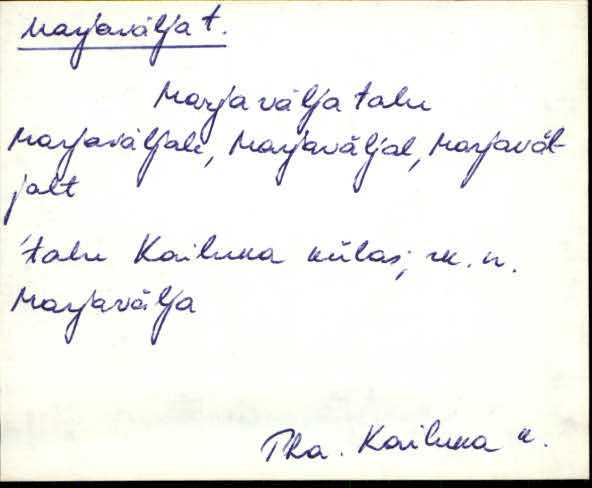 Marjavälja t.
Marjavälja talu
Marjaväljale, Marjaväljal, Marjaväl-
jalt
'talu Kailuka külas; rk. n.
Marjavälja
Pha. Kailuka k.